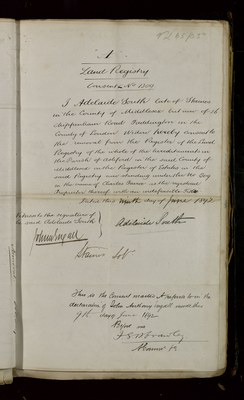 A
Land Registry
I Adelaide South late of Staines
in the County of Middlesex but now of 16
Chippenham Road Paddington in the
County of London Widow hereby consent to
the removal from the Register of the Land
Registry of the whole of the hereditaments in
the Parish of Ashford in the said County of
Middlesex in the Register of Estates in the
said Registry now standing under the
in the name of Charles as the registered
Proprietor thereof with an indefeasible Title
Dated this ninth day of June 1892
Witness to the signature of
the said Adelaide South
Adelaide South
Staines Sol
This is the Consent marked A referred to in the
declaration of John Anthony Engall made this
9th day of June 1892
Before me